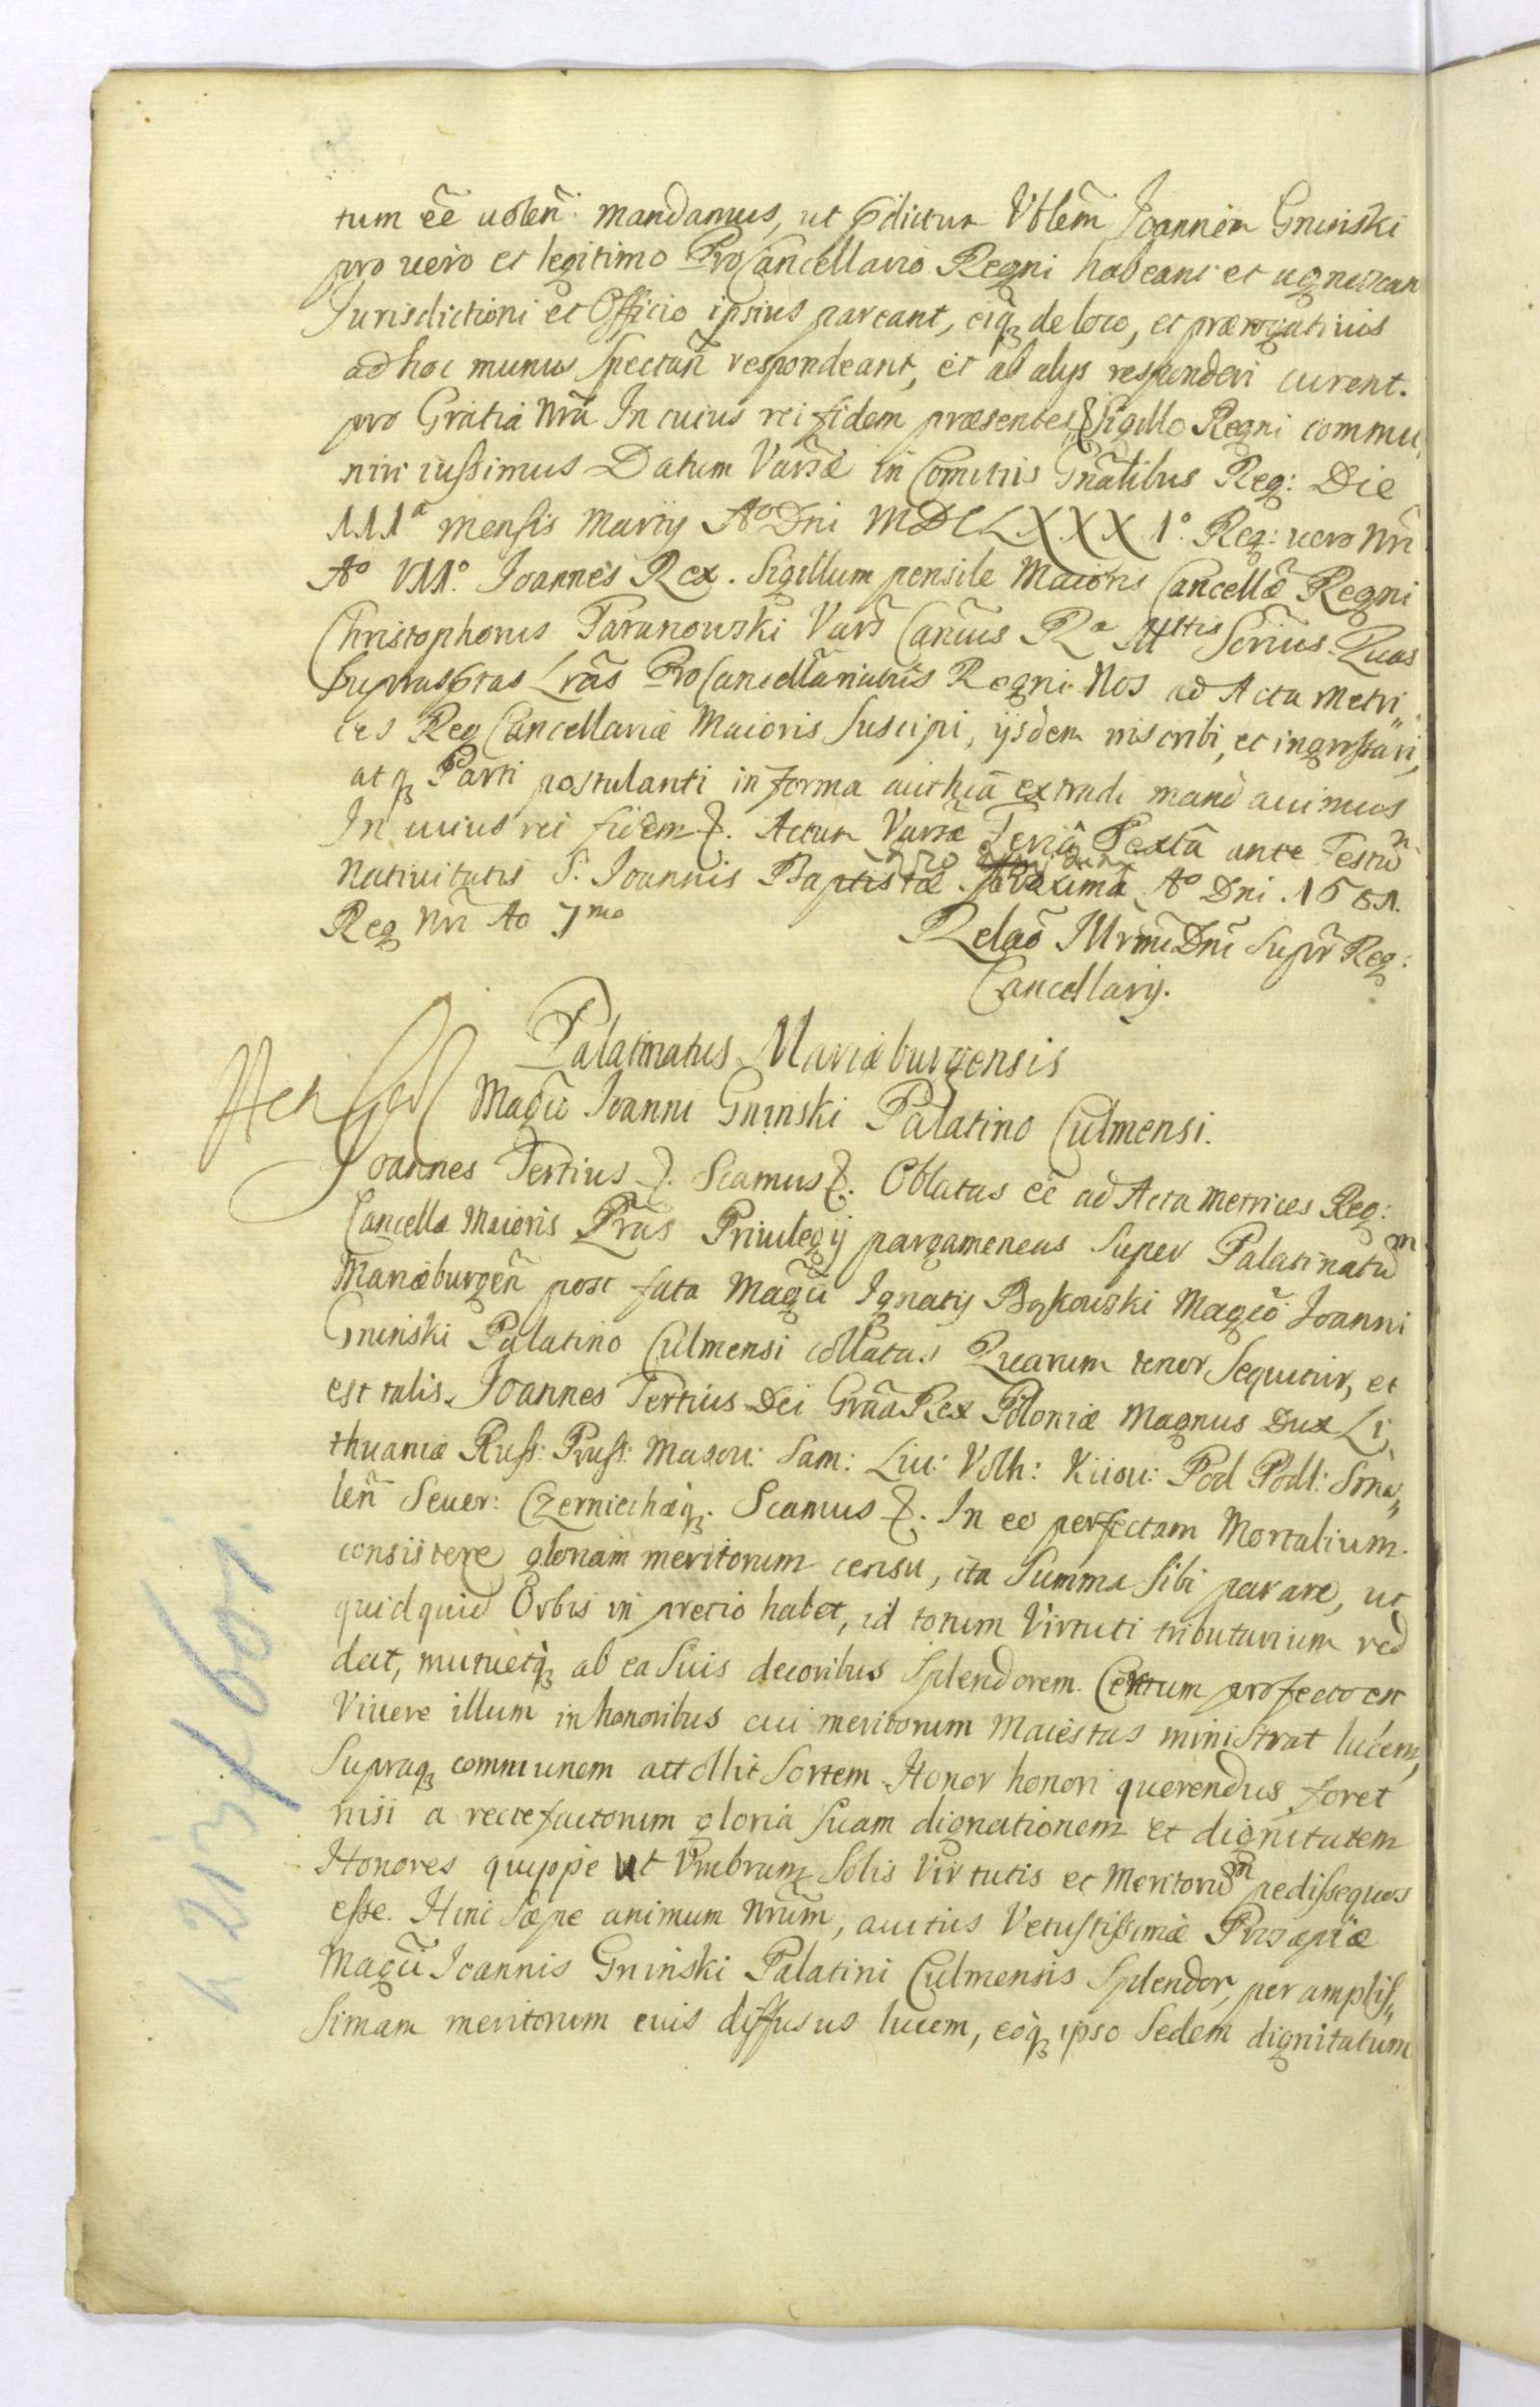 tum eẽ uolen̄: mandamus, ut p̱dictum Vblem̃ Joannem Gninski
pro uero et legitimo ProCancellario Regni habeant et agnoscan
Jurisdictioni et Officio ipsius pareant, eiq; de loco, et prærogatiuis
ad hoc munus Spectañ respondeant, et ab alijs responderi curent.
pro Gratia Nrã In cuius rei fidem præsentes Sigillo Regni commu„
niri iussimus Datum Varsæ in Comitiis Gnãlibus Reg: Die
IIIa mensis Martij Ao Dni MDCLXXXIo. Reg: uero Nri
Ao VIIo. Joannes Rex. Sigillum pensile Maioris Cancellæ Regni
Christophorus Taranowski Vars̃ Canc̃us Ra Mttis Scrĩus. Quas
Supras̱ptas Lrãs ProCancellãriatus Regni Nos ad Acta Metri„
ces Reg Cancellariæ Maioris Suscipi, ijsdem inscribi, et ingrossari,
atq; Parti postulanti in forma authẽa extradi mandauimus
In cuius rei fidem &. Actum Varsæ Feriâ Sextâ ante Festũm
Natiuitatis S. Joannis Baptistæ proximâ Ao Dni. 1681.
Reg Nri Ao 7mo
Relaõ Illrmĩ Dni Supr̃ Reg:
Cancellarij.
Palatinatus Mariæburgensis
Magc̃o Joanni Gninski Palatino Culmensi.
Joannes Tertius &. Scamus &. Oblatas eẽ ad Acta Metrices Reg:
Cancellæ Maioris Lrãs Priuilegij pargameneas Super Palatinatũm
Mariæburgeñ post fata Magc̃i Ignatij Bąkowski Magc̃o Joanni
Gninski Palatino Culmensi collatas Quarum tenor Sequitur, et
est talis. Joannes Tertius Dei Grãa Rex Poloniæ Magnus Dux Li„
thuaniæ Russ: Pruss: Masou: Sam: Liu: Volh: Kiiou: Pod Podl: Smo„
leñ Seuer: Czerniechæq;. Scamus &. In eo perfectam Mortalium
consistere gloriam meritorum censu, ita Summa Sibi parare, ut
quidquid Orbis in pretio habet, id totum Virtuti tributarium red
dat, mutuetq; ab ea Suis decoribus Splendorem. Certum profecto est
Viuere illum in honoribus cui meritorum Maiestas ministrat lucem,
Supraq; communem attollit Sortem. Honor honori querendus foret
nisi a rectefactorum gloria Suam dignationem et dignitatem
Honores quippe ut Vmbram Solis Virtutis et Meritorũm pedissequos
esse. Hinc Sæpe animum Nrũm, auitus Vetustissimæ Prosapiæ
Magc̃i Joannis Gninski Palatini Culmensis Splendor, per amplis„
Simam meritorum euis diffusus lucem, eoq; ipso Sedem dignitatum